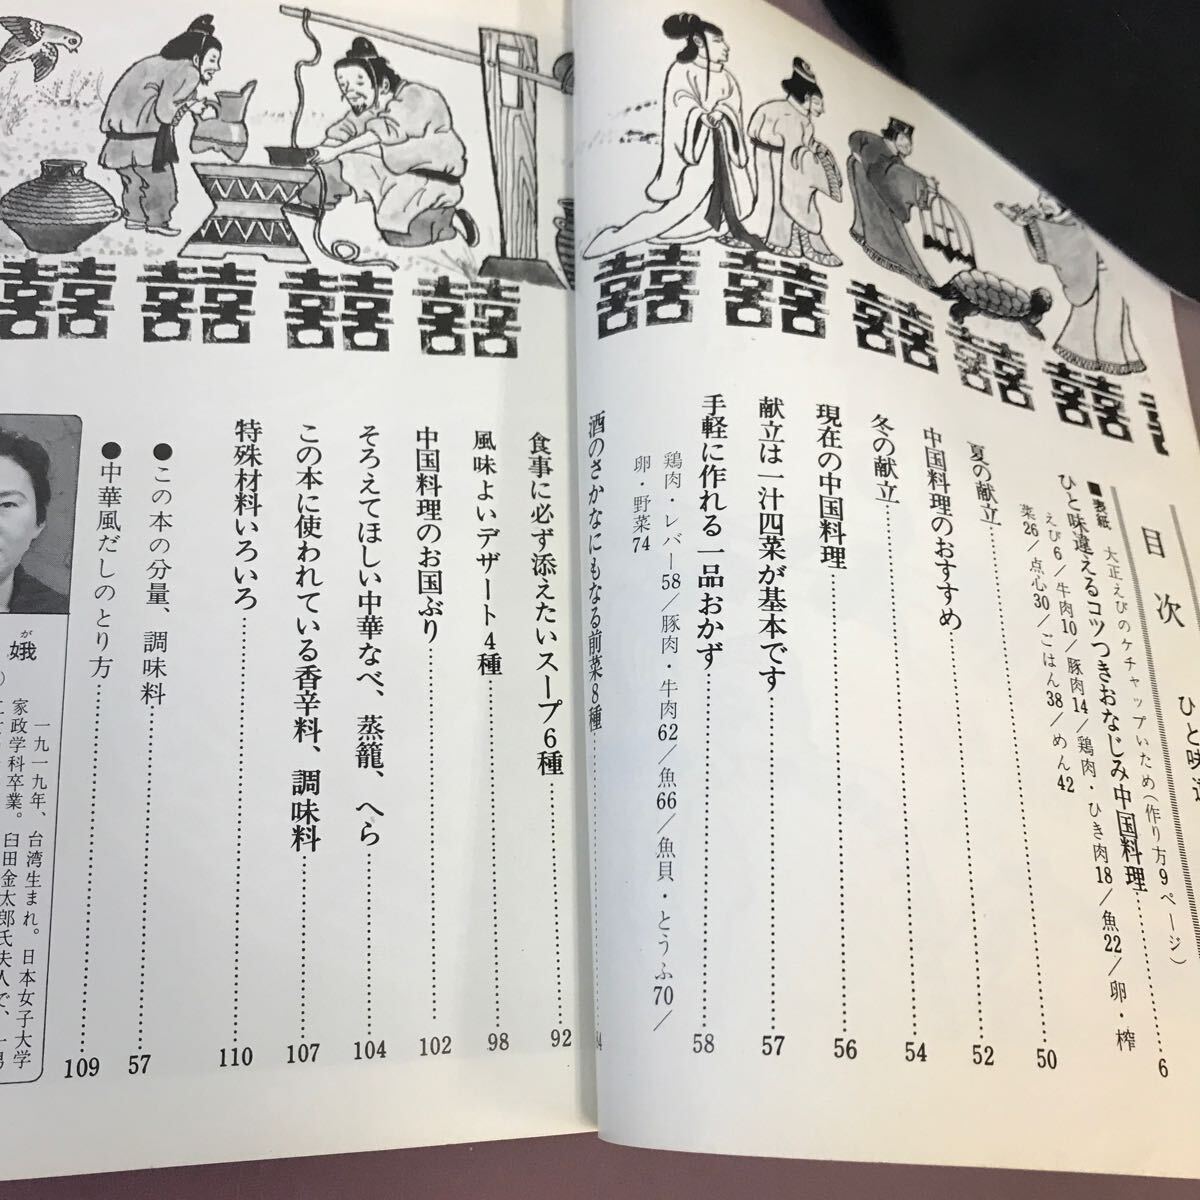 目次 ひと味違
■表紙 大正えびのケチャップいため(作り方9ページ)
ひと味違えるコツつきおなじみ中国料理 6
えび6/牛肉10/豚肉14/鶏肉・ひき肉18/魚22/卵・榨
菜26/点心30/ごはん38/めん42
夏の献立 50
中国料理のおすすめ 52
冬の献立 54
現在の中国料理 56
献立は一汁四菜が基本です 57
手軽に作れる一品おかず 58
鶏肉・レバー58/豚肉・牛肉62/魚66/魚貝・とうふ70/
卵・野菜74
酒のさかなにもなる前菜8種 84
食事に必ず添えたいスープ6種 92
風味よいデザート4種 98
中国料理のお国ぶり 102
そろえてほしい中華なべ、蒸籠、へら 104
この本に使われている香辛料、調味料 107
特殊材料いろいろ 110
●この本の分量、調味料 57
●中華風だしのとり方 109
娥
が
一九一九年、台湾生まれ。日本女子大学
家政学科卒業。臼田金太郎氏夫人で、一男
囍囍囍囍囍囍囍囍囍